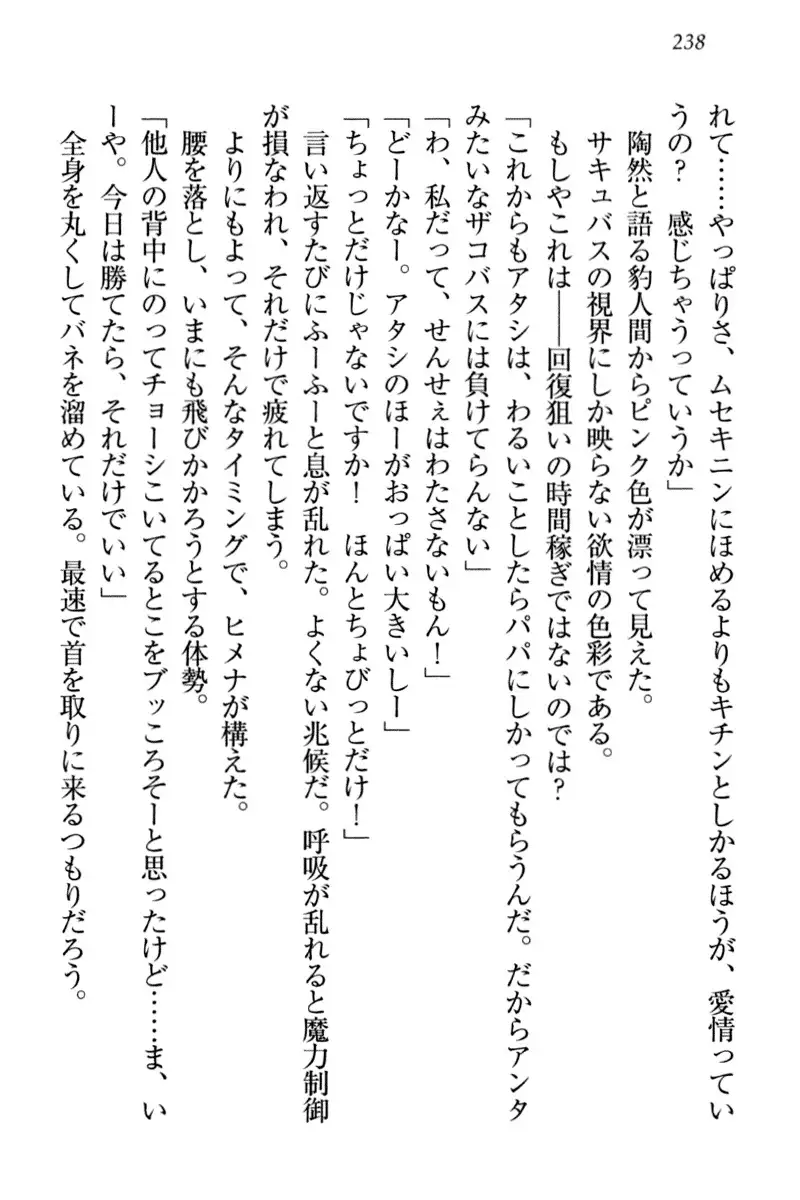 238
れて……やっぱりさ、ムセキニンにほめるよりもキチンとしかるほうが、愛情ってい
うの？　感じちゃうっていうか」
　陶然と語る豹人間からピンク色が漂って見えた。
　サキュバスの視界にしか映らない欲情の色彩である。
　もしやこれは――回復狙いの時間稼ぎではないのでは？
「これからもアタシは、わるいことしたらパパにしかってもらうんだ。だからアンタ
みたいなザコバスには負けてらんない」
「わ、私だって、せんせぇはわたさないもん！」
「どーかなー。アタシのほーがおっぱい大きいしー」
「ちょっとだけじゃないですか！　ほんとちょびっとだけ！」
　言い返すたびにふーふーと息が乱れた。よくない兆候だ。呼吸が乱れると魔力制御
が損なわれ、それだけで疲れてしまう。
　よりにもよって、そんなタイミングで、ヒメナが構えた。
　腰を落とし、いまにも飛びかかろうとする体勢。
「他人の背中にのってチョーシこいてるとこをブッころそーと思ったけど……ま、い
ーや。今日は勝てたら、それだけでいい」
　全身を丸くしてバネを溜めている。最速で首を取りに来るつもりだろう。